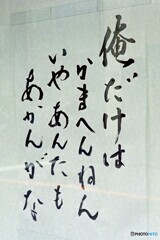 俺だけは
かまへんねん
いやあんたも
あかんがな
PHOTOHITO